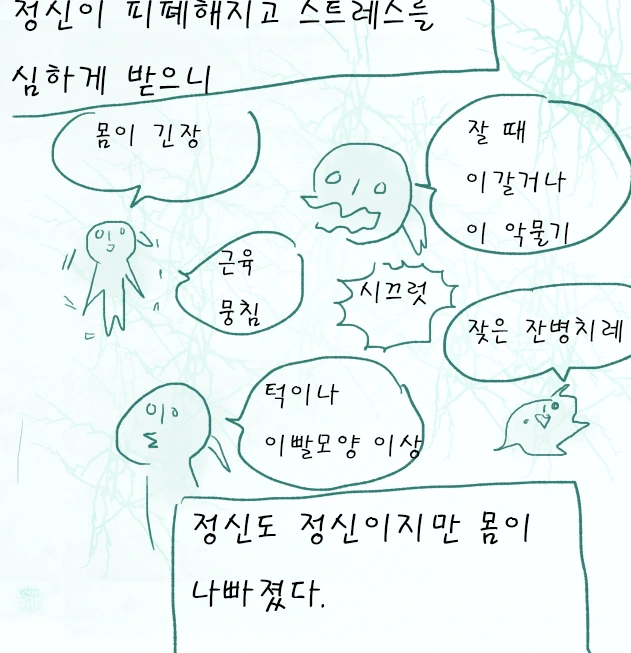 정신이 피폐해지고 스트레스를
심하게 받으니
몸이 긴장
잘 때
이갈거나
이 악물기
근육
뭉침
시끄럿
잦은 잔병치레
턱이나
이빨모양 이상
정신도 정신이지만 몸이
나빠졌다.